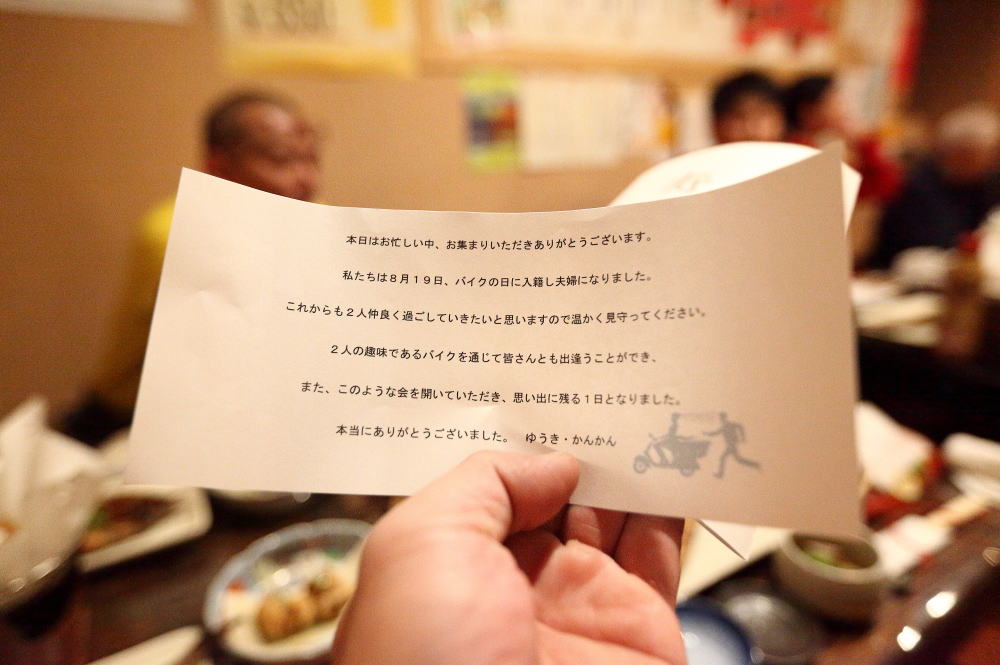 本日はお忙しい中、お集まりいただきありがとうございます。
私たちは８月１９日、バイクの日に入籍し夫婦になりました。
これからも２人仲良く過ごしていきたいと思いますので温かく見守ってください。
２人の趣味であるバイクを通じて皆さんとも出逢うことができ、
また、このような会を開いていただき、思い出に残る１日となりました。
本当にありがとうございました。　ゆうき・かんかん